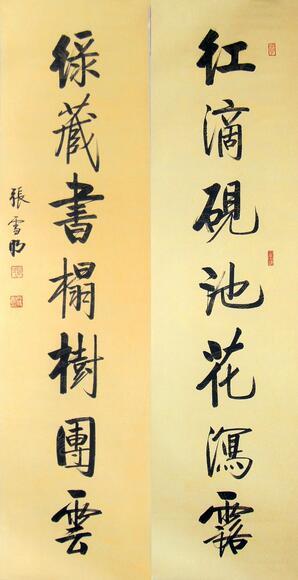 紅滴硯池花瀉露
綠藏書榻樹團雲
張雪